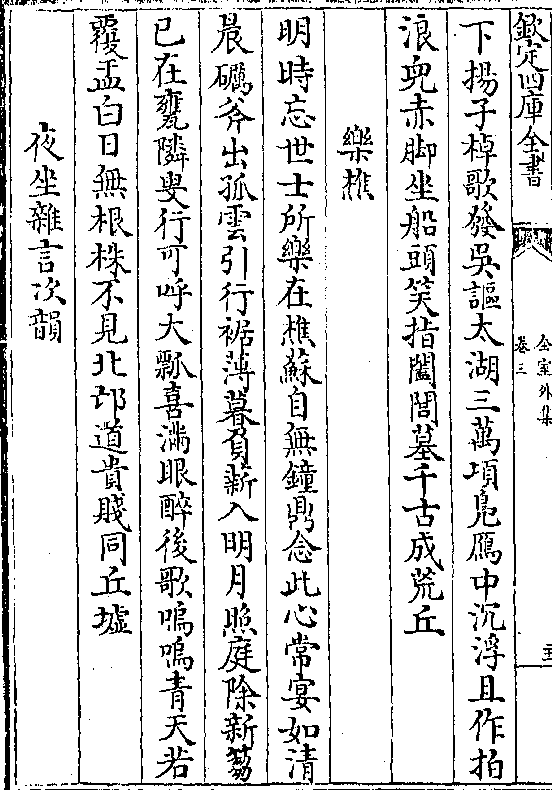 欽定四庫全書
全室外集
卷三
下揚子棹歌發吳謳太湖三萬頃鳧鴈中沉浮且作拍
浪兒赤脚坐船頭笑指闔閭墓千古成荒丘
樂樵
明時忘世士所樂在樵蘇自無鐘鼎念此心常宴如清
晨礪斧出孤雲引行裾薄暮負薪入明月照庭除新蒭
已在甕隣叟行可呼大瓢喜滿眼醉後歌嗚嗚青天若
覆盂白日無根株不見北邙道貴賤同丘墟
夜坐雜言次韻